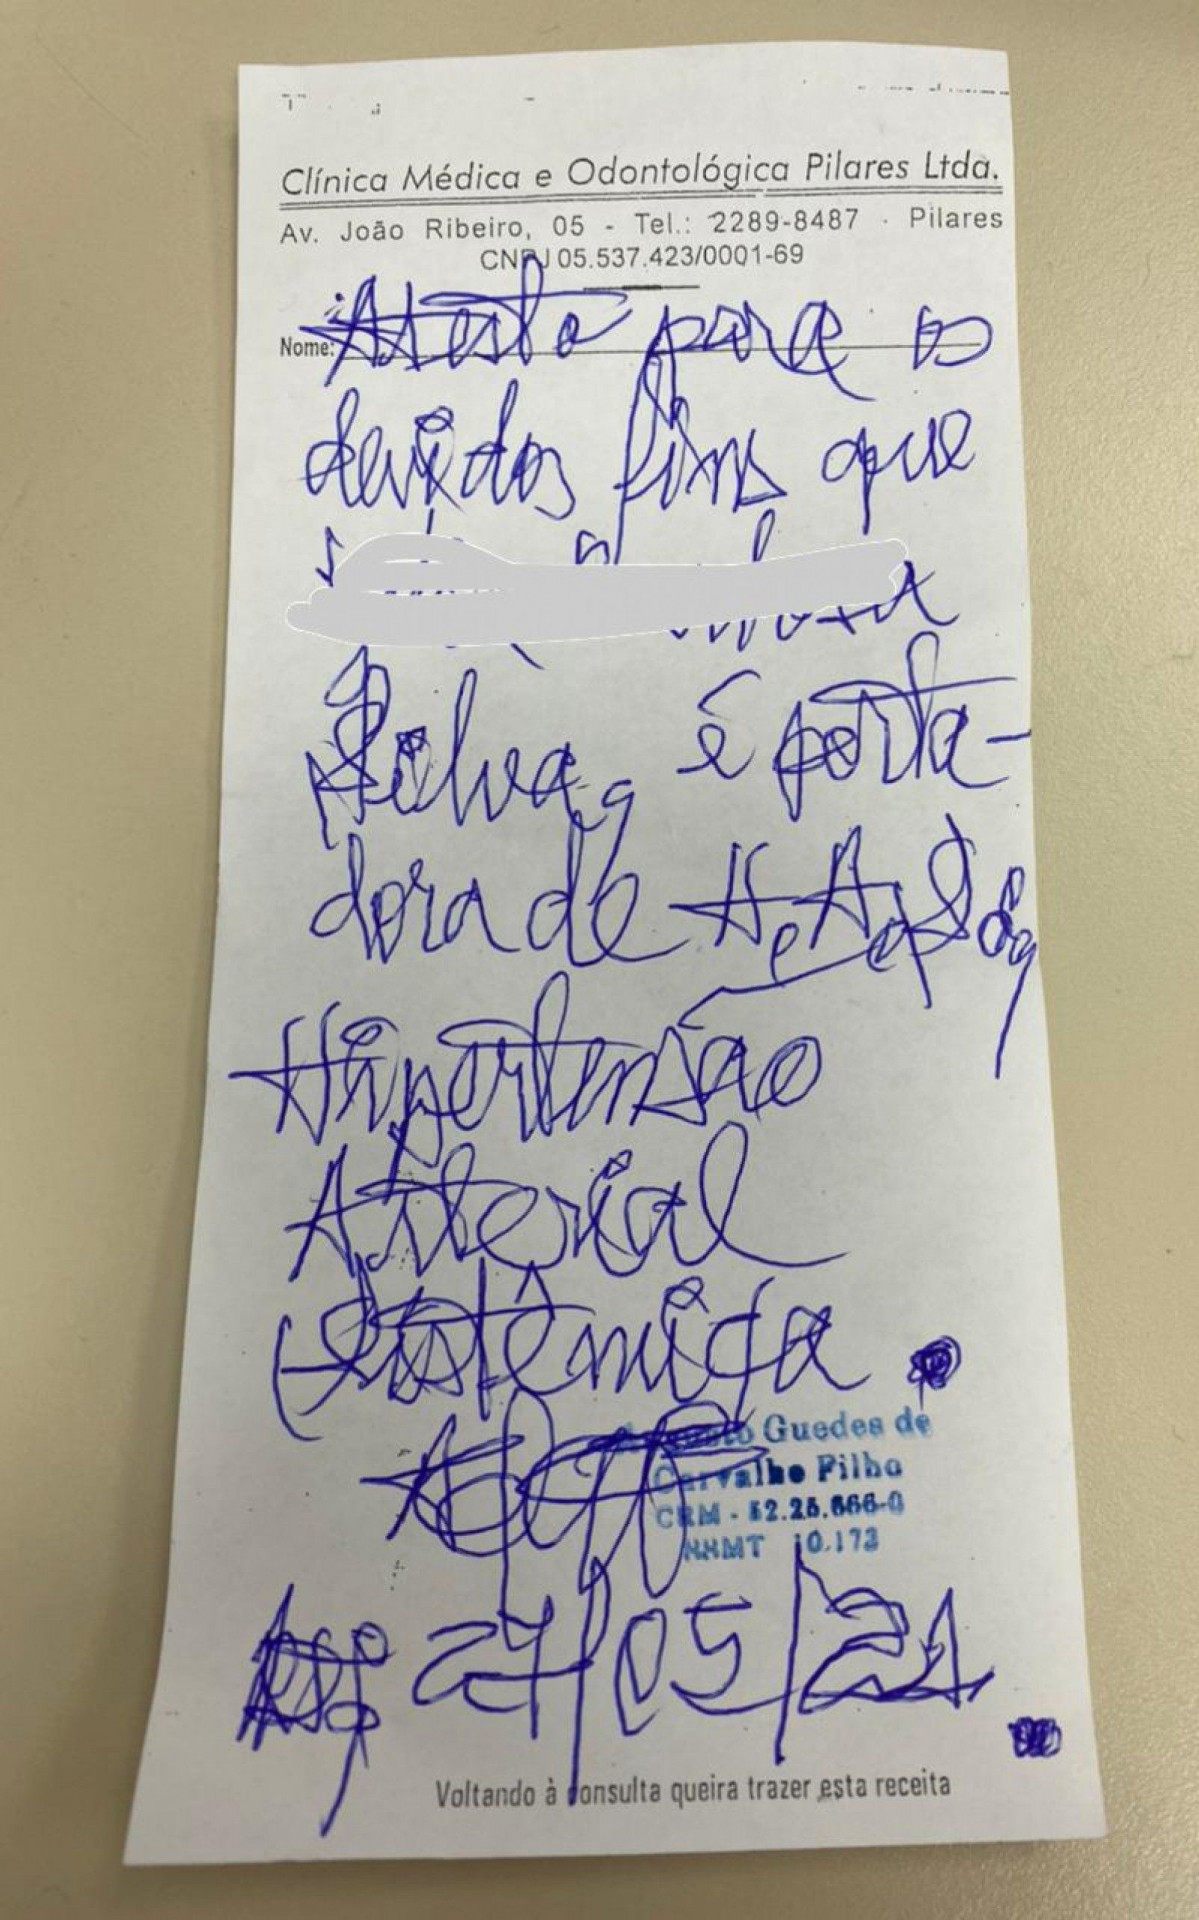 Clínica Médica e Odontológica Pilares Ltda.
Av. João Ribeiro, 05 - Tel.: 2289-8487 - Pilares
CNPJ 05.537.423/0001-69
Nome: Atesto para os
devidos fins que
Silva, é porta-
dora de H.A.S.
Hipertensão
Arterial
Sistêmica.
Guedes de
Carvalho Filho
CRM - 52.25.666-0
10.173
05/21
Voltando à consulta queira trazer esta receita